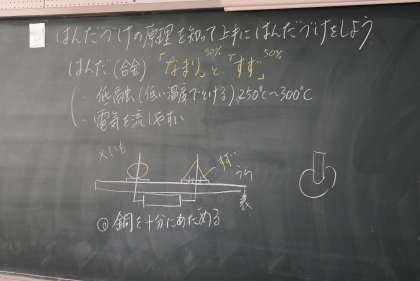 はんだづけの原理を知って上手にはんだづけをしよう
はんだ(合金)「なまり」と「すず」
50% 50%
・低融(低い温度でとける)250℃〜300℃
・電気を流しやすい
すず
うら
表
◎銅を十分にあたためる